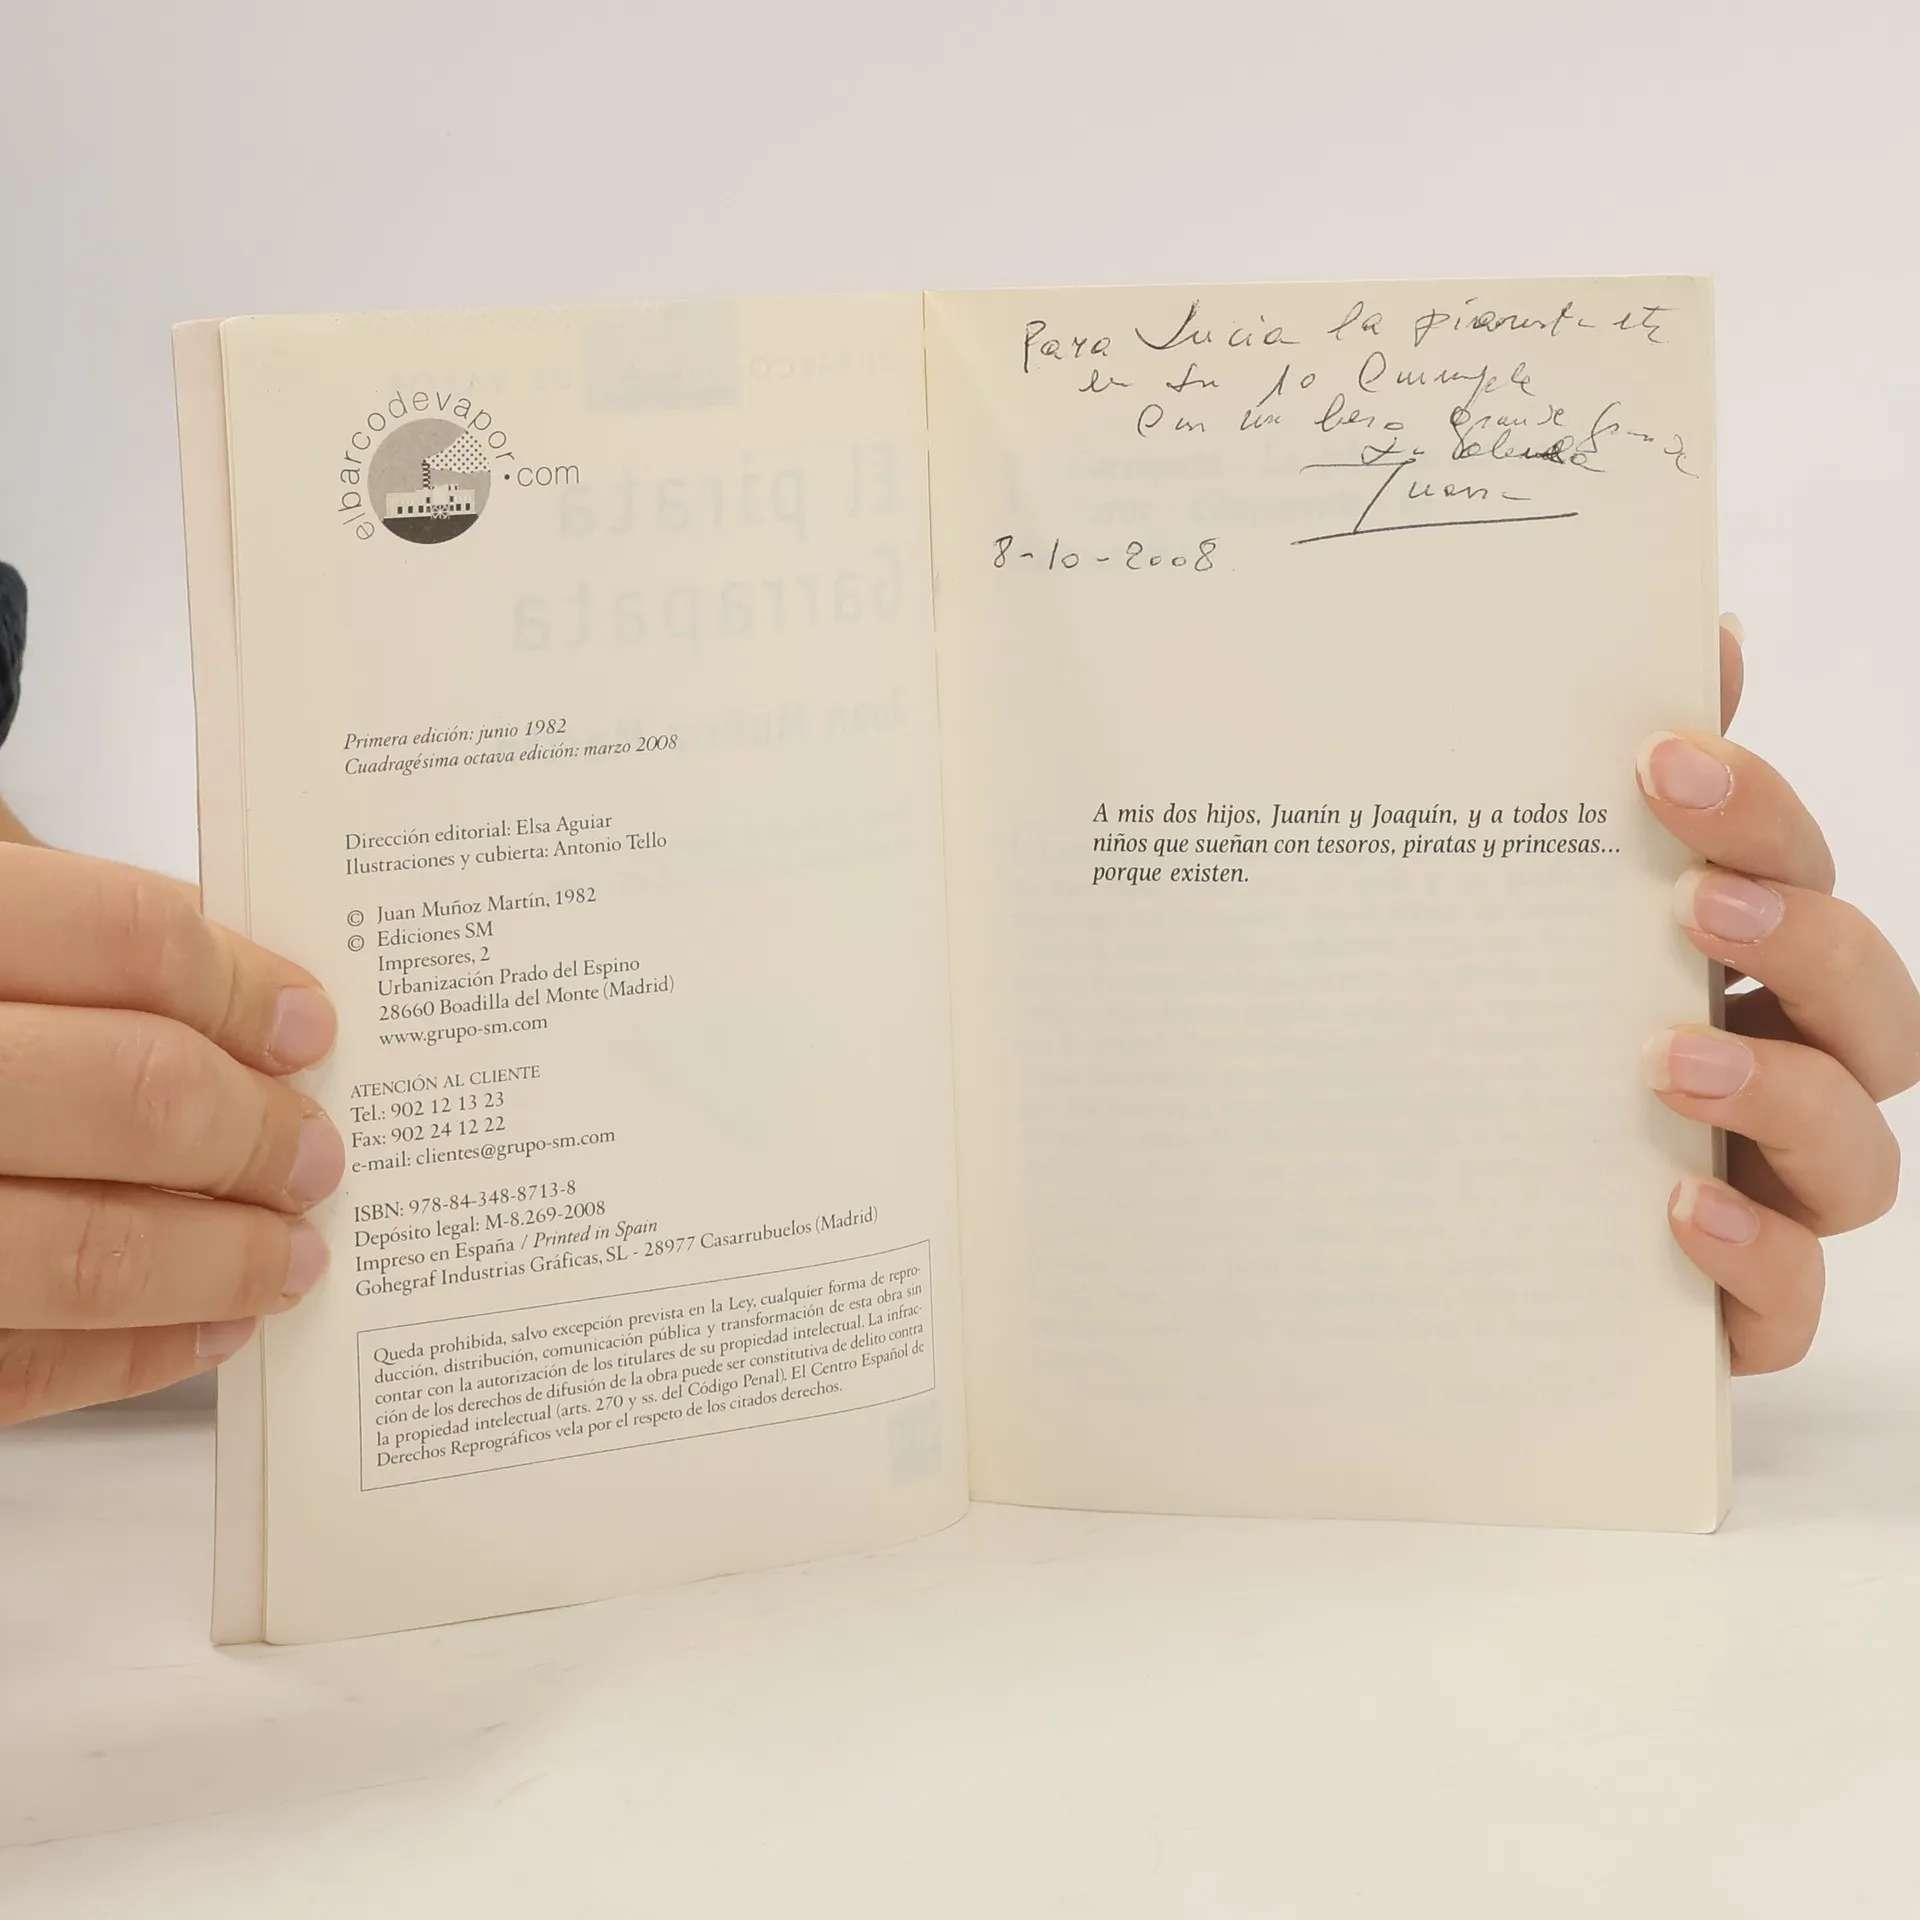 elbarcodevapor.com
Primera edición: junio 1982
Cuadragésima octava edición: marzo 2008
Dirección editorial: Elsa Aguiar
Ilustraciones y cubierta: Antonio Tello
© Juan Muñoz Martín, 1982
© Ediciones SM
Impresores, 2
Urbanización Prado del Espino
28660 Boadilla del Monte (Madrid)
www.grupo-sm.com
ATENCIÓN AL CLIENTE
Tel.: 902 12 13 23
Fax: 902 24 12 22
e-mail: clientes@grupo-sm.com
ISBN: 978-84-348-8713-8
Depósito legal: M-8.269-2008
Impreso en España / Printed in Spain
Gohegraf Industrias Gráficas, SL - 28977 Casarrubuelos (Madrid)
Queda prohibida, salvo excepción prevista en la Ley, cualquier forma de repro-
ducción, distribución, comunicación pública y transformación de esta obra sin
contar con la autorización de los titulares de su propiedad intelectual. La infrac-
ción de los derechos de difusión de la obra puede ser constitutiva de delito contra
la propiedad intelectual (arts. 270 y ss. del Código Penal). El Centro Español de
Derechos Reprográficos vela por el respeto de los citados derechos.
Para Lucia la
en su 10 Cumple
Con un beso grande grande
Juan
8-10-2008
A mis dos hijos, Juanín y Joaquín, y a todos los
niños que sueñan con tesoros, piratas y princesas...
porque existen.